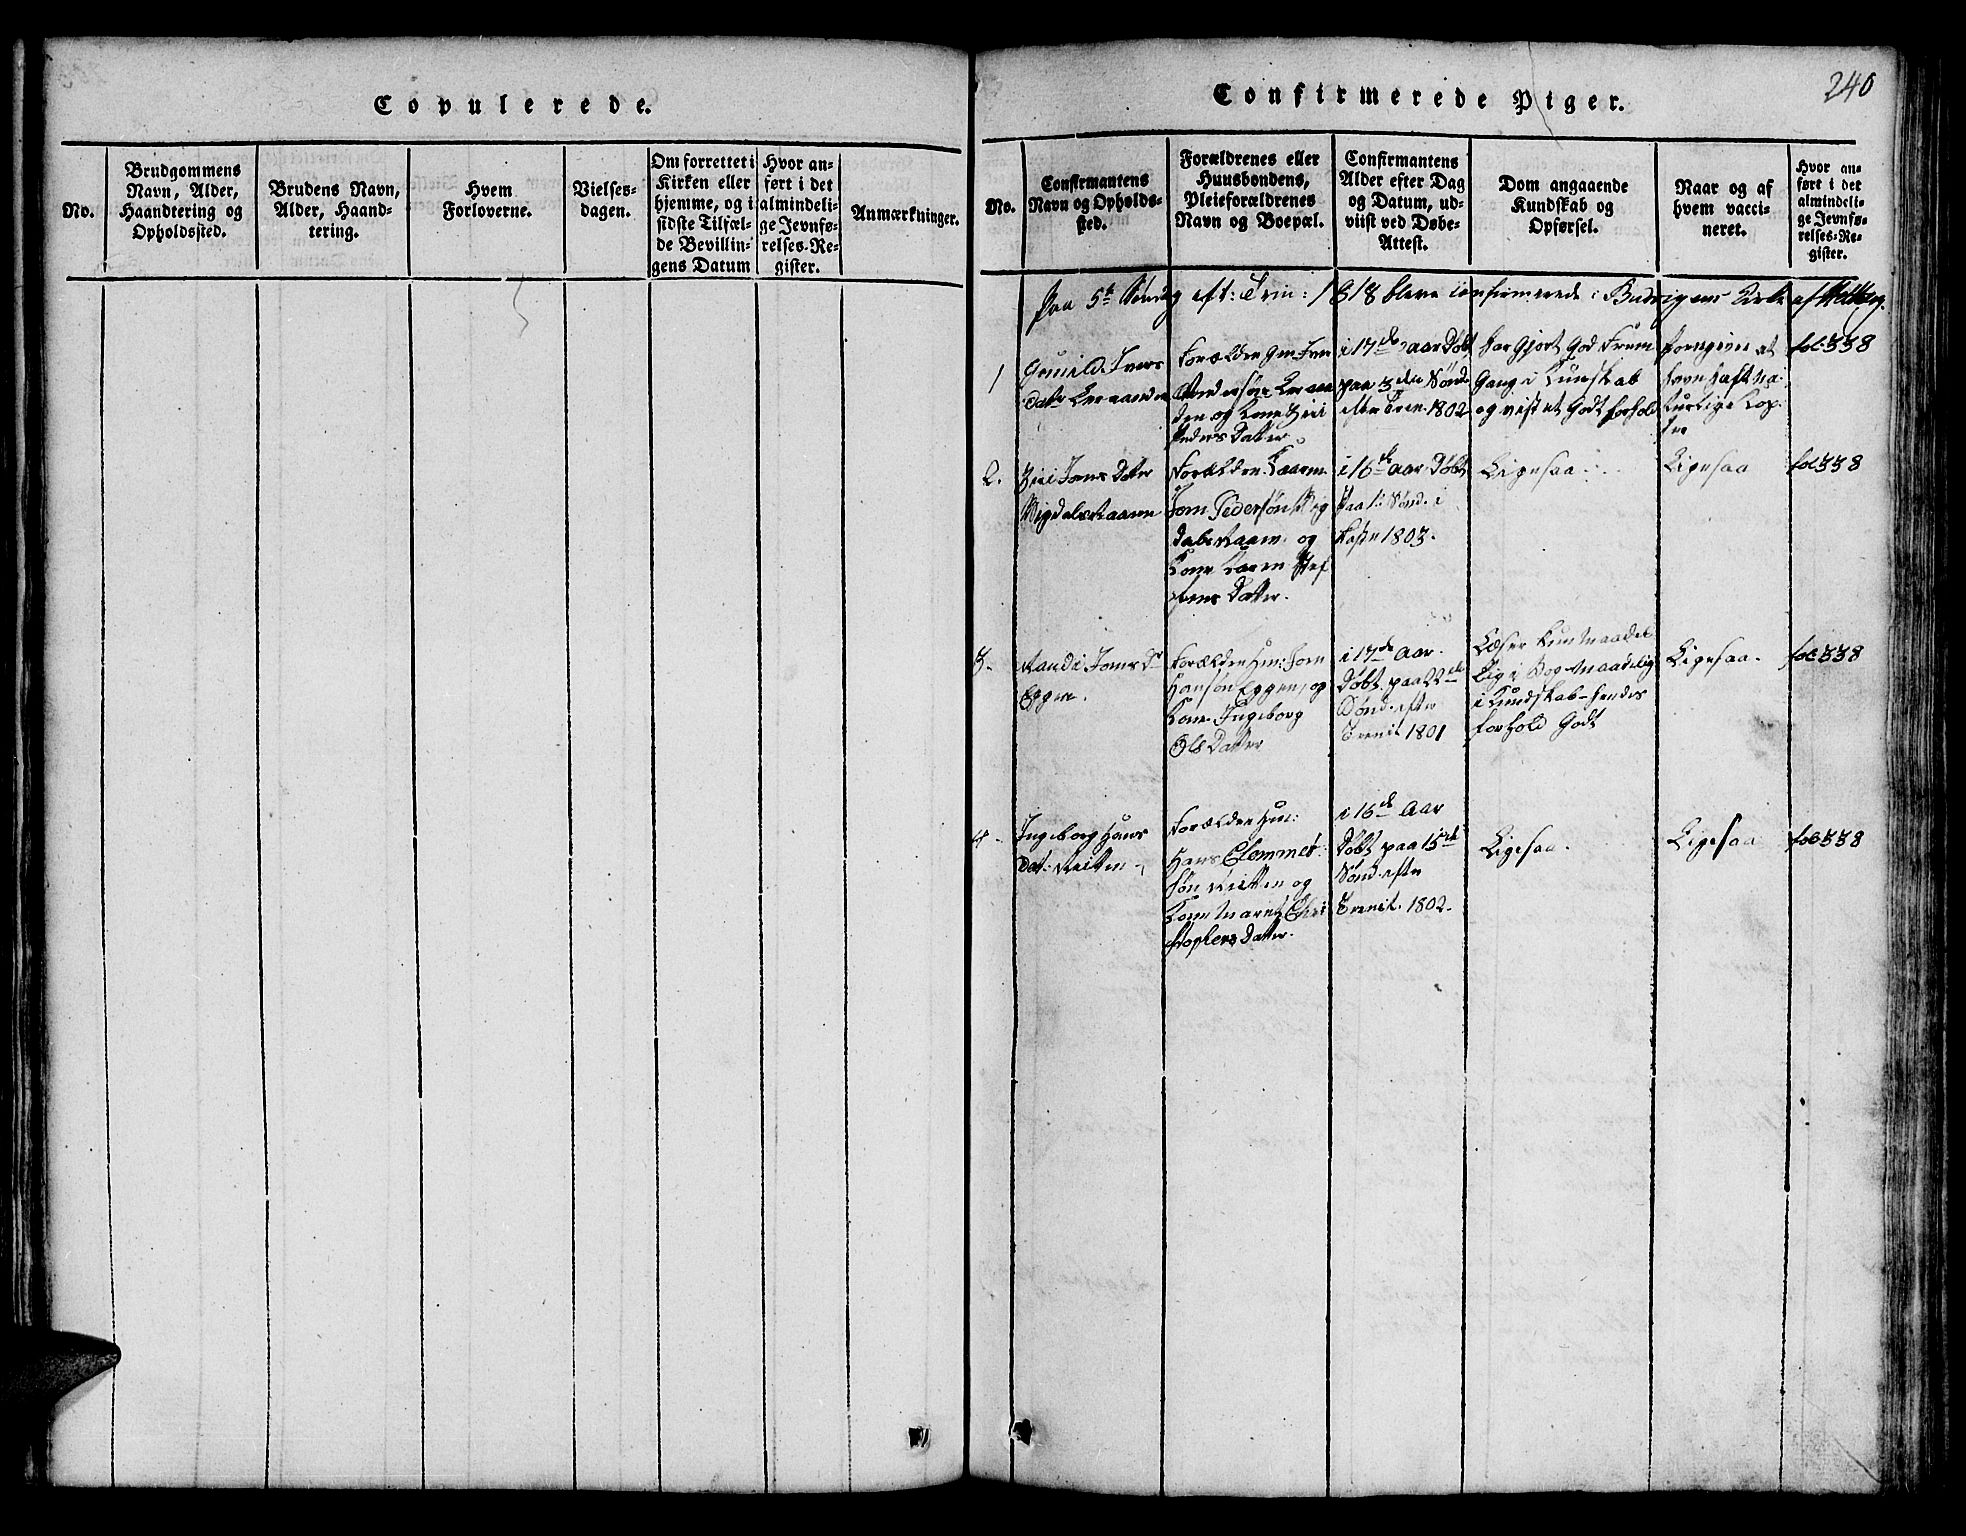 Copulerede.
No.
Brudgommens
Navn, Alder,
Haandtering og
Opholdssted.
Brudens Navn,
Alder, Haand-
tering.
Hvem
Forloverne.
Vielses-
dagen.
Om forrettet i
Kirken eller
hjemme, og i
sidste Tilfæl-
de Bevillin-
gens Datum
Hvor an-
ført i det
almindeli-
ge Jevnfø-
relses-Re-
gister.
Anmærkninger.
240
Confirmerede Piger.
No.
Confirmantens
Navn og Opholds-
sted.
Forældrenes eller
Huusbondens,
Pleieforældrenes
Navn og Boepæl.
Confirmantens
Alder efter Dag
og Datum, ud-
viist ved Døbe-
Attest.
Dom angaaende
Kundskab og
Opførsel.
Naar og af
hvem vacci-
neret.
Hvor an-
ført i det
almindeli-
ge Jevnfø-
relses-Re-
gister.
Paa 5te Søndag eft: Trin: 1818 bleve confirmerede i Kirke af
1
Gunild Ivers
datr
Forældre Gm Iver
Andersøn
og Kone Siri
Peders Datter
i 17de Aar Døbt
paa 3die Sønd.
efter Tren. 1802
har Gjort God Frem
Gang i Kunskab
og vist et Godt forhold
Foregiver at
have haft na-
turlige Kop-
per
fol 338
2.
Siri Jons Datter
Forældre
Jon Pedersøn
og
Kone Karen Stef
fens Datter.
i 16de Aar Døbt
Paa 1: Sønd. i
Faste 1803.
Ligesaa
Ligesaa
fol 338
3.
Randi Jons Dr
Eggen.
Forældre Hm: Jon
Hansøn Eggen, og
Kone Ingeborg
Ols Datter
i 17de Aar.
Døbt paa 22de
Sønd. efter
Trenit 1801
Læser kun maade
lig i Bog Maadelig
i Kundskab - hendes
forhold Godt
Ligesaa.
fol 338
4.
Ingeborg Hans
Dat: Reitten
Forældre Hm:
Hans Clemmet
søn Reitten og
Kone Maret Chri
stophers Datter.
i 16de Aar
Døbt paa 15de
Sønd. efter
Trenit. 1802.
Ligesaa.
Ligesaa
fol 338